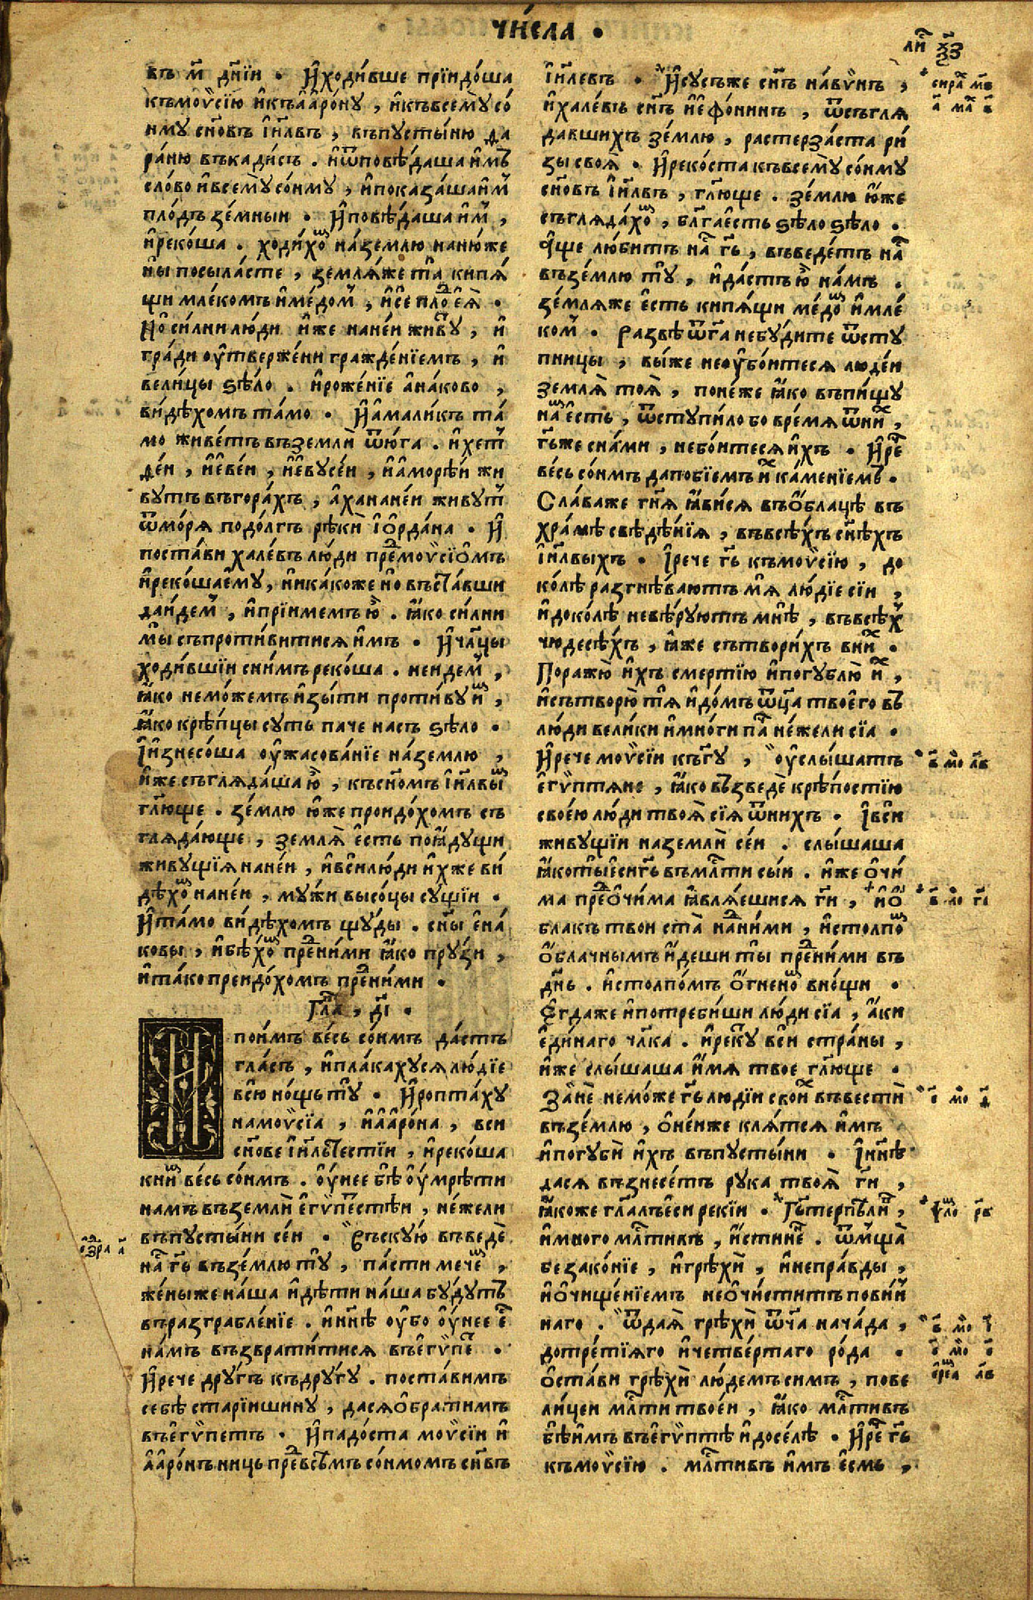 чи́сла •
ли҇ х҃з
въ м҃ дн҃їи • И҆ходи́вше прїидо́ша
къмоѷсїю и҆къа҆аро́ну , и҆къвсемꙋ̀ со́
нмꙋ сн҃овъ і҆и҃лвъ , въпꙋсты́ню да
ра́ню въкади́съ . и҆ѿповѣ́даша и҆мъ
сло́во и҆всемꙋ̀ со́нмꙋ , и҆показа́шаи҆м
пло́дъ зе́мныи • И҆повѣ́даша и҆м ,
и҆реко́ша . ходи́хо на́землю наню́же
ны̀ посыла́сте , земля́же та̀ кипѧ́
щи млеко́мъ и҆ме́дом , и҆сѐ пло́ еѧ̀ •
Но̀ си́лни лю́ди и҆же нане́и живꙋ́ , и҆
гра́ди оу҆тверже́ни гражде́нїемъ , и҆
вели́цы ѕѣло̀ . и҆роже́нїе а҆на́ково ,
ви́дѣхомъ та́мо • И҆а҆мали́къ та́
мо живе́тъ въземлѝ ѿю́га . и҆хетт
е́и , и҆е҆ве́и , и҆і҆евꙋсе́и , и҆а҆море́и жи
вꙋтъ въгора́хъ , а҆ханане́и живꙋ́т
ѿмо́ря подо́лгъ рѣкѝ і҆ѻ҆рда́на • И҆
поста́ви хале́въ лю́ди пре́моѷсїо́мъ
и҆реко́шаему̀ , и҆ника́коже но̀ въста́вши
да́идем , и҆прїи́мемъ ю҆̀ . ꙗ҆́ко си́лни
мы̀ съпроти́витися и҆мъ • И҆ча́цы
ходи́вшїи сни́мъ реко́ша . неи́дем ,
ꙗ҆́ко немо́жемъ и҆зы́ти проти́вꙋ и҆́ ,
ꙗ҆́ко крѣ́пцы сꙋть паче на́съ ѕѣло •
И҆изнесо́ша оу҆жасова́нїе на́землю ,
и҆́же съгляда́ша ю҆̀ , късно́мъ і҆и҃лвы
гл҃юще . зе́млю ю҆́же проидо́хомъ съ
гляда́юще , земля̀ е҆́сть поꙗ҆дꙋ́щи
живꙋщїя нане́и , и҆всѝлюди и҆́хже ви́
дѣхо нане́и , мꙋ́жи высо́цы сꙋ́щїи •
И҆та́мо ви́дѣхомъ щꙋ́ды . сн҃ы є҆на́
ковы , и҆бѣ́хо пре́ни́ми ꙗ҆ко прꙋ́зи ,
и҆та́ко преидо́хомъ пре́ни́ми •
Гла̀ , д҃і •
И
пои́мъ ве́сь со́нмъ да́стъ
гла́съ , и҆пла́кахꙋся лю́дїе
всю̀ но́щь тꙋ̀ • И҆ропта́хꙋ
намоѷсїа , и҆а҆аро́на , вси
сн҃ове і҆и҃льтестїи , и҆реко́ша
кни́ ве́сь со́нмъ . оу҆́нее бѣ̀ оу҆мрѣ́ти
на́мъ въземлѝ е҆гѵ́петстѣи , не́жели
въпꙋсты́ни се́и • Въскꙋю̀ въведѐ
на́ г҃ь възе́млю тꙋ̀ , па́сти мече́ ,
же́ныже на́ша и҆дѣ́ти на́ша бꙋ́дꙋтъ
вразграбле́нїе . и҆нн҃ѣ оу҆́бо оу҆́нее е҆
на́мъ възврати́тися въегѵ́пе •
И҆рече дрꙋ́гъ кдрꙋ́гꙋ . поста́вимъ
себѣ̀ старѣ́ишинꙋ , дася̀ѻ҆брати́мъ
въегѵ́петъ • И҆падо́ста моѷсїи и҆
а҆аро́нъ ни́цъ пре́всѣ́мъ со́нмомъ сн҃въ
і҆и҃левъ • И҆сꙋ́съже сн҃ъ на́вѵнъ ,
и҆хале́въ сн҃ъ и҆е҆фо́нинъ , ѿсъгля
да́вшихъ зе́млю , растерза́ста ри́
зы своя̀ • И҆реко́ста къвсемꙋ̀ со́нмꙋ
сн҃овъ і҆и҃лвъ , гл҃юще . зе́млю ю҆́же
съгляда́хо , бл҃гае҆́сть ѕѣло̀ ѕѣло̀ .
А҆́ще лю́битъ на́ г҃ь , въведе́тъ на́
възе́млю тꙋ̀ , и҆да́стъ ю҆̀ на́мъ .
земля́же е҆́сть кипя́щи ме́до и҆мле́
ком • Развѣ̀ ѿг҃а небꙋ́дите ѿстꙋ
пницы , вы́же неоу҆бо́итеся люде́и
земля̀ тоя̀ , поне́же ꙗ҆ко въпи́щꙋ
на́ е҆сть , ѿстꙋпи́ло бо вре́мя ѿни́ ,
г҃ьже сна́ми , небо́итеся и҆́хъ • И҆ре́
ве́сь со́нмъ дапобїемъ и҆́ ка́менїемъ •
Сла́важе гн҃я ꙗ҆ви́ся въо҆́блацѣ въ
хра́мѣ свѣдѣ́нїя , въвсѣ́хъ сн҃ѣхъ
і҆и҃лвыхъ • І҆рече г҃ь къмоѷсїю , до
ко́лѣ разгнѣва́ютъ мя̀ лю́дїе сїи ,
и҆доко́лѣ невѣ́рꙋютъ мнѣ̀ , въвсѣ́х
чюдесѣ́хъ , ꙗ҆́же сътвори́хъ вни́ •
Поражю̀ и҆́хъ сме́ртїю и҆погꙋблю̀ и҆́ ,
и҆сътворю̀ тя̀ и҆до́мъ ѿц҃а твоего̀ въ
лю́ди вели́ки и҆мно́ги па̀ не́жели сїа •
И҆рече моѷсїи къг҃ꙋ , оу҆слы́шатъ
е҆гѵ́птяне , ꙗ҆ко възведѐ крѣ́постїю
свое́ю лю́ди твоя̀ сїя ѿни́хъ • І҆всѝ
живꙋщїи на́землѝ се́и . слы́шаша
ꙗ҆котыесѝг҃ь въмл҃ти сы́и . и҆же ѻ҆чи́
ма пре́ѻ҆чи́ма ꙗ҆вля́ешися г҃и , и҆ѻ҆́
блакъ тво́и ста̀ на́ни́ми , и҆столпо́
ѻ҆́блачнымъ и҆́деши ты̀ пре́ни́ми въ
дн҃ь . и҆столпо́мъ ѻ҆́гнено вно́щи •
Е҆гда́же и҆потреби́ши лю́ди сїа , а҆́ки
е҆ди́наго чл҃ка . и҆рекꙋ́ всѝ стра́ны ,
и҆́же слы́шаша и҆́мя твое гл҃юще •
Занѐ немо́же г҃ь людїи свои́ въвестѝ
възе́млю , ѻ҆не́иже кля́тся и҆́мъ
и҆погꙋбѝ и҆́хъ въпꙋсты́ни • І҆нн҃ѣ
дася̀ възнесе́тъ рꙋка твоя̀ г҃и ,
ꙗ҆́коже гл҃алъесѝ рекїи • Г҃ь терпѣли́ ,
и҆мно́го мл҃тивъ , и҆и҆́стине . ѿмща̀
беззако́нїе , и҆грѣхѝ , и҆непра́вды ,
и҆ѻ҆чище́нїемъ неѻ҆чи́ститъ пови́н
наго . ѿдая̀ грѣхѝ ѿч҃а нача́да ,
дотре́тїяго и҆четве́ртаго ро́да •
Ѻ҆ста́ви грѣхѝ лю́демъ си́мъ , пове
ли́цеи мл҃ти твое́и , ꙗ҆́ко мл҃тивъ
бѣи́мъ въегѵ́птѣ и҆досе́лѣ • И҆ре́ г҃ь
къмоѷсїю . мл҃тивъ и҆́мъ е҆́смь ,